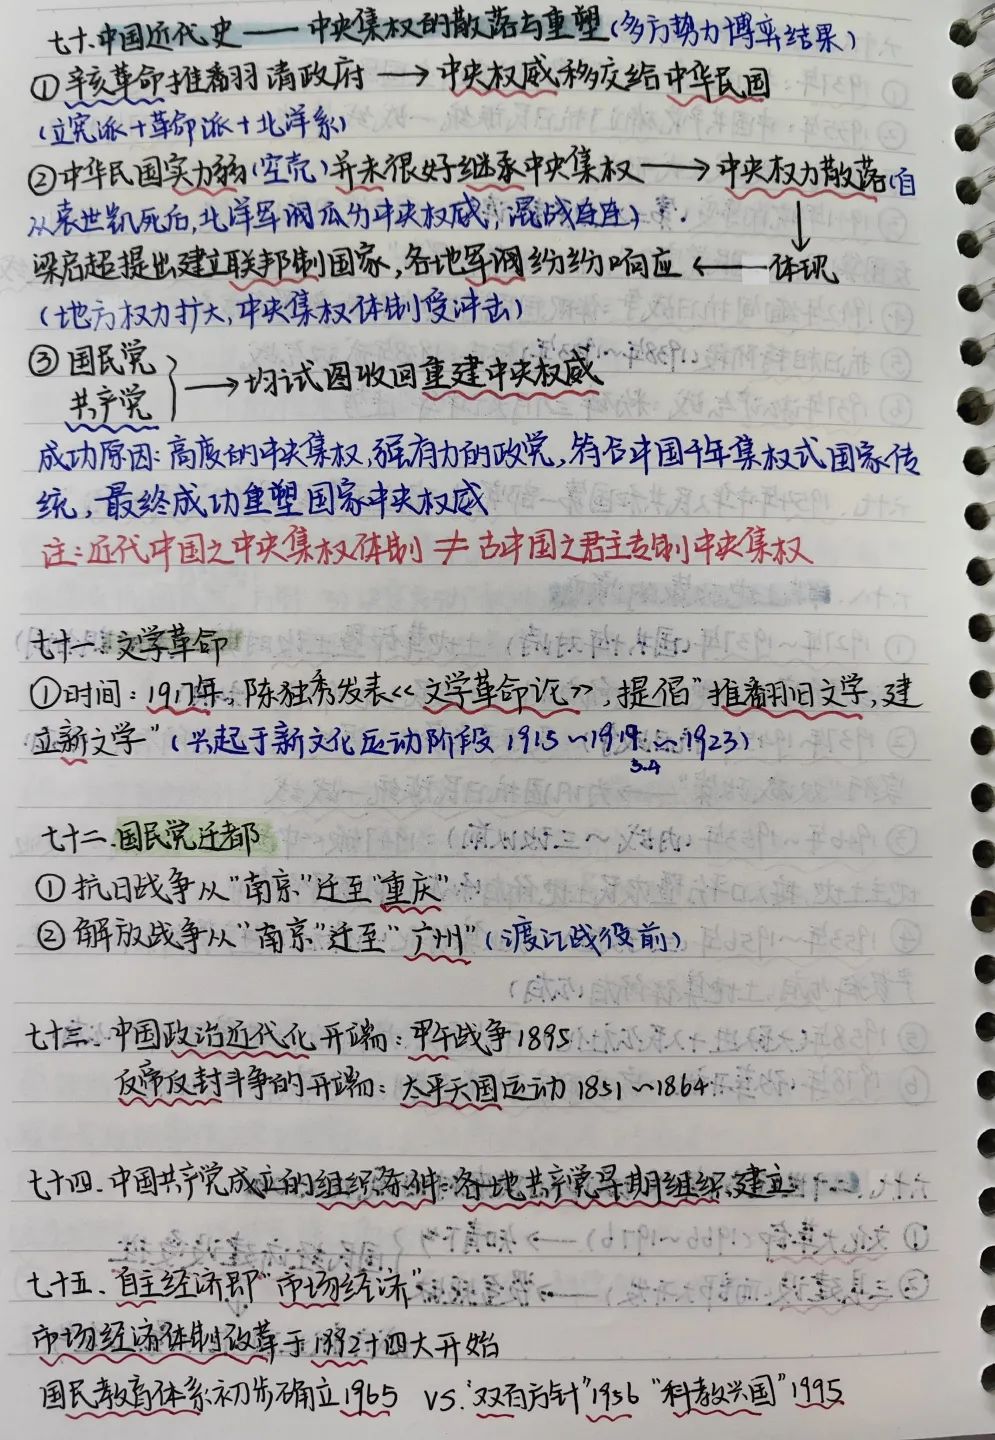 七十.中国近代史——中央集权的散落与重塑(多方势力博弈结果)
①辛亥革命推翻清政府 → 中央权威移交给中华民国
(立宪派+革命派+北洋系)
②中华民国实力弱(空壳)并未很好继承中央集权 → 中央权力散落(自
从袁世凯死后,北洋军阀瓜分中央权威,混战连连)
梁启超提出建立联邦制国家,各地军阀纷纷响应 ← 体现
(地方权力扩大,中央集权体制受冲击)
③国民党
共产党 } → 均试图收回重建中央权威
成功原因:高度的中央集权,强有力的政党,符合中国千年集权式国家传
统,最终成功重塑国家中央权威
注:近代中国之中央集权体制 ≠ 古中国之君主专制中央集权
七十一.文学革命
①时间:1917年,陈独秀发表<<文学革命论>>,提倡"推翻旧文学,建
立新文学"(兴起于新文化运动阶段 1915~1919~1923)
5.4
七十二.国民党迁都
①抗日战争从"南京"迁至"重庆"
②解放战争从"南京"迁至"广州"(渡江战役前)
七十三.中国政治近代化开端:甲午战争1895
反帝反封斗争的开端:太平天国运动 1851~1864
七十四.中国共产党成立的组织条件:各地共产党早期组织建立
七十五.自主经济即"市场经济"
市场经济体制改革于1992十四大开始
国民教育体系初步确立1965 VS."双百方针"1956 "科教兴国"1995